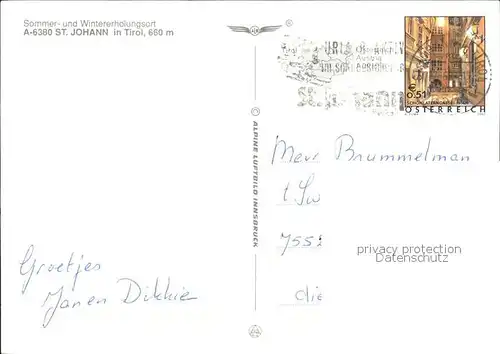 Sommer- und Wintererholungsort
A-6380 ST. JOHANN in Tirol, 660 m
© ALPINE LUFTBILD INNSBRUCK
€ 0,51
ÖSTERREICH
Mevr Brummelman
t.Sw
755
die
privacy protection
Datenschutz
Groetjes
Jan en Dikkie